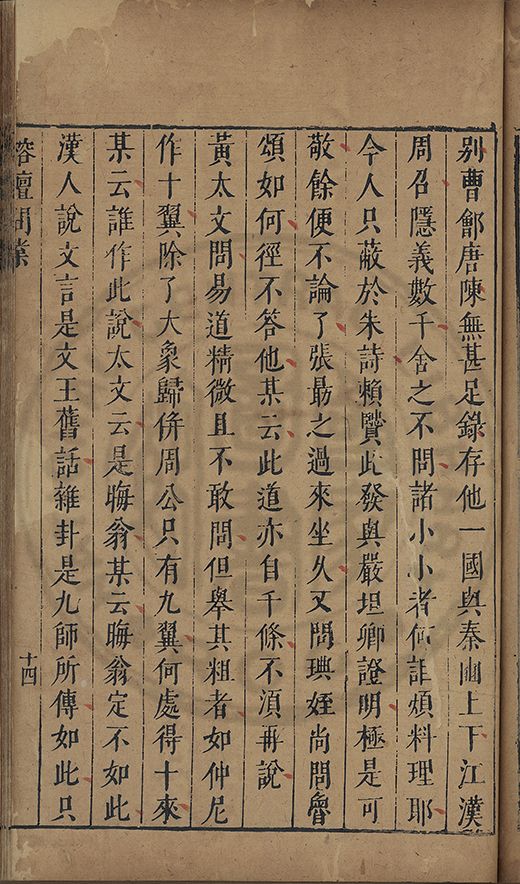 別曹鄶唐陳無甚足錄存他一國與秦豳上下江漢
周召隱義數千舍之不問諸小小者何詎煩料理耶
今人只蔽於朱詩賴賢此發與嚴坦卿證明極是可
敬餘便不論了張勗之過來坐久又問琠姪尚問魯
頌如何徑不答他某云此道亦自千條不須再說
黃太文問易道精微且不敢問但舉其粗者如仲尼
作十翼除了大象歸併周公只有九翼何處得十來
某云誰作此說太文云是晦翁某云晦翁定不如此
漢人說文言是文王舊話雜卦是九師所傳如此只
榕壇問業
十四